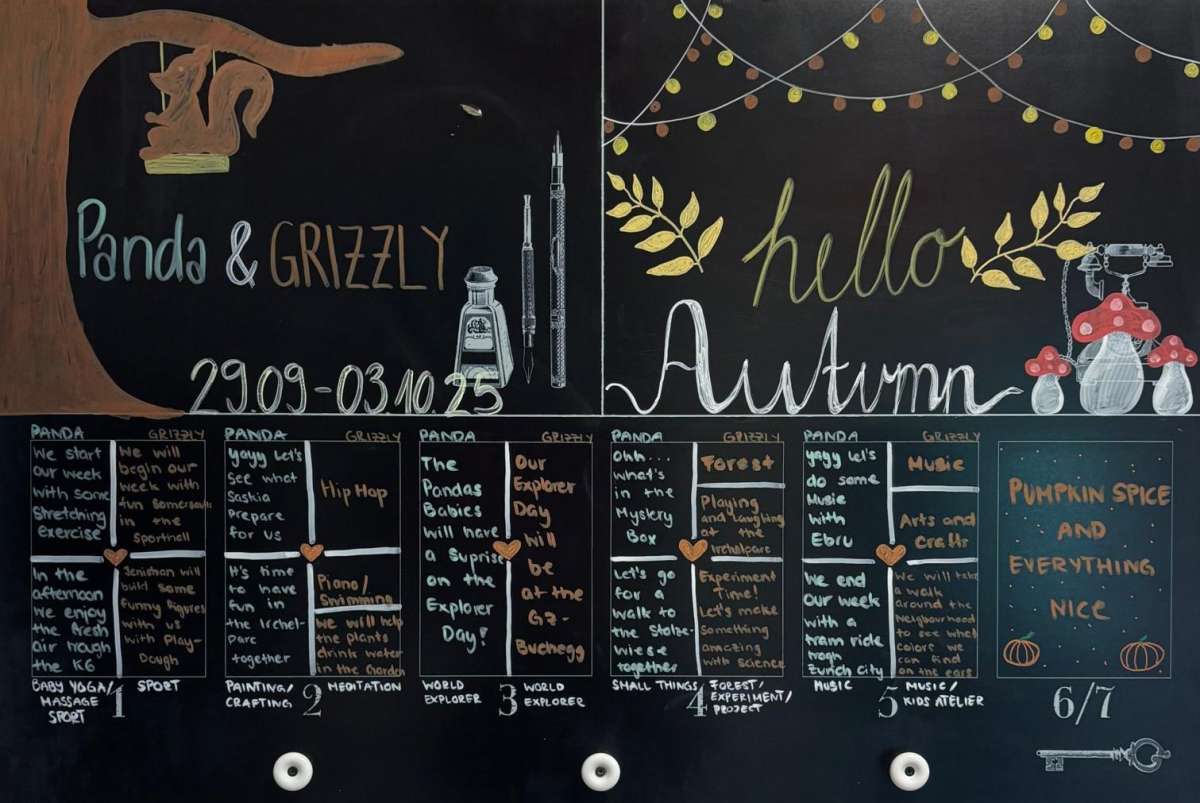 Panda & GRIZZLY
29.09-03.10.25
hello
Autumn
PANDA
We start
our week
with some
Stretching
exercise
In the
afternoon
we enjoy
the fresh
air trough
the K6
BABY YOGA/
MASSAGE
SPORT
GRIZZLY
We will
begin our
week with
fun Somersaults
in the
Sporthall
build some
funny figures
with us
with Play-
Dough
SPORT
1
PANDA
yayy Let's
See what
Saskia
Prepare
for us
It's time
to have
fun in
the Irchel-
Parc
together
PAINTING/
CRAFTING
GRIZZLY
Hip Hop
Piano/
Swimming
We will help
the plants
drink water
in the Garden
MEDITATION
2
PANDA
The
Pandas
Babies
will have
a Suprise
on the
Explorer
Day!
WORLD
EXPLORER
GRIZZLY
Our
Explorer
Day
will
be
at the
GZ-
Buchegg
WORLD
EXPLORER
3
PANDA
Ohh...
what's
in the
Mystery
Box
Let's go
for a
walk to
the Stolze-
wiese
together
SMALL THINGS
GRIZZLY
Forest
Playing
and Laughing
at the
Irchelparc
Experiment
Time!
Let's make
something
amazing
with science
FOREST/
EXPERIMENT/
PROJECT
4
PANDA
yayy Let's
do some
Music
with
Ebru
We end
our week
with a
tram ride
trogh
Zurich City
MUSIC
GRIZZLY
Music
Arts and
Crafts
We will take
a walk
around the
Neighbourhood
to see what
colors we
can find
on the cars
MUSIC/
KIDS ATELIER
5
PUMPKIN SPICE
AND
EVERYTHING
NICE
6/7